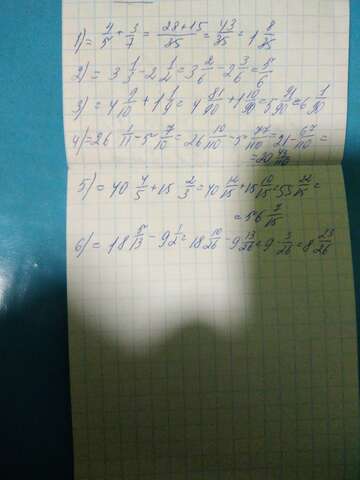 1) = 4/5 + 3/7 = 28+15/35 = 43/35 = 1 8/35
2) = 3 1/3 - 2 1/2 = 3 2/6 - 2 3/6 = 5/6
3) = 4 9/10 + 1 1/9 = 4 81/90 + 1 10/90 = 5 91/90 = 6 1/90
4) = 26 1/11 - 5 7/10 = 26 10/110 - 5 77/110 = 21 - 67/110 =
= 20 43/110
5) = 40 4/5 + 15 2/3 = 40 12/15 + 15 10/15 = 55 22/15 =
= 56 7/15
6) = 18 5/13 - 9 1/2 = 18 10/26 - 9 13/26 = 9 - 3/26 = 8 23/26